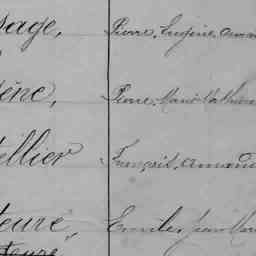 sage, Pierre, Eugène, Aman
ène, Pierre, Marie Mathurin
ellier François, Amand
teure, Emile, Jean Mar
teure,